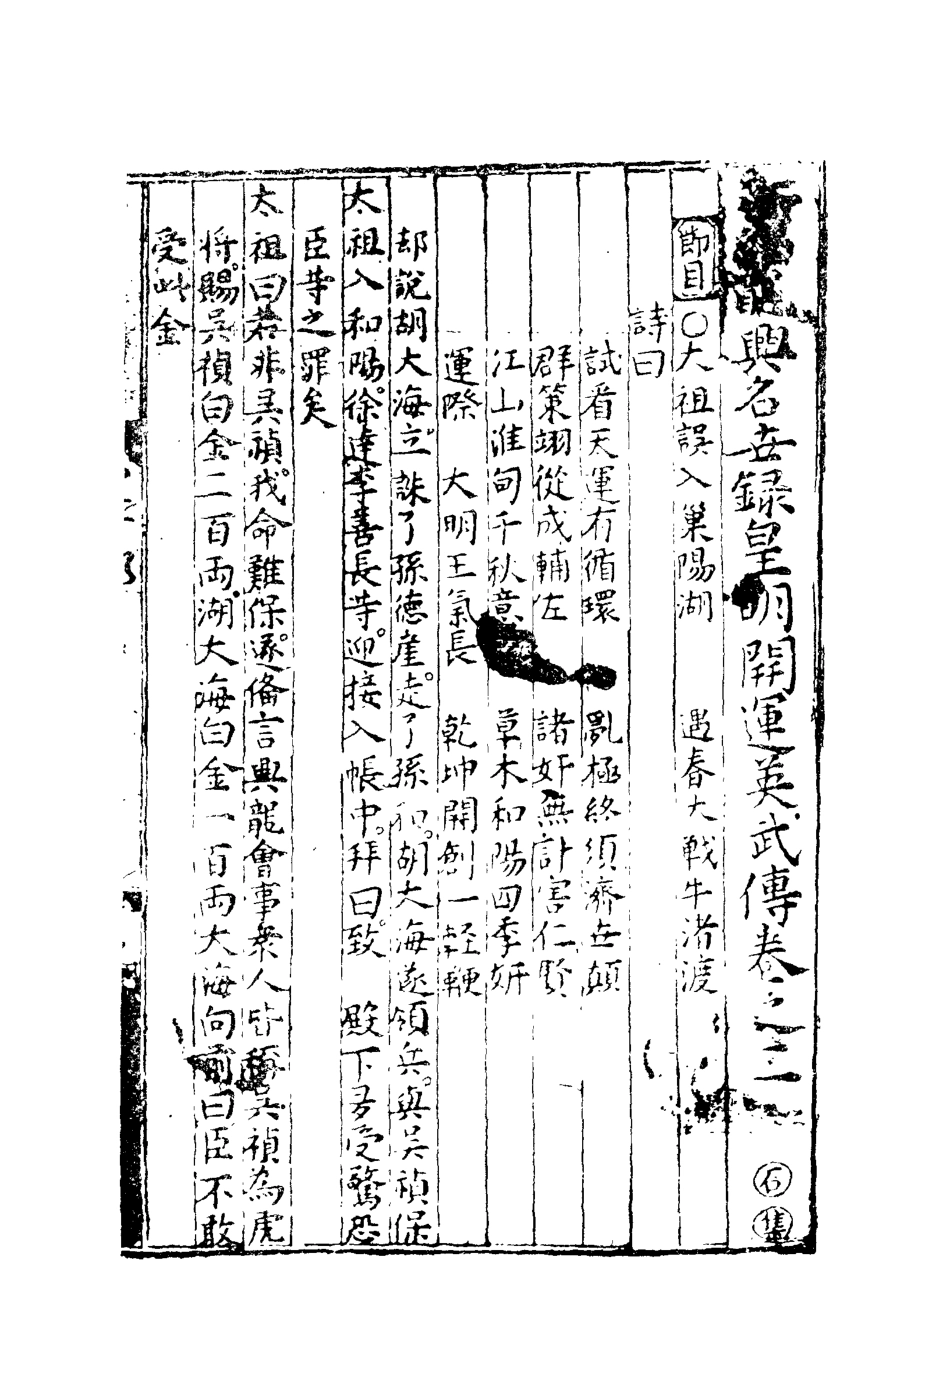 龍興名世録皇明開運英武傳卷之三 石集
節目○大祖誤入巢陽湖 遇春大戰牛渚渡
詩曰
試看天運有循環 亂極終須濟世顛
群策翊從成輔佐 諸奸無計害仁賢
江山淮甸千秋意 草木和陽四季妍
運際 大明王氣長 乾坤開創一輕鞭
却說胡大海立誅了孫德崖走了孫和胡大海遂領兵與吴禎保
太祖入和陽徐達李善長等迎接入帳中拜曰致 殿下多受驚恐
臣等之罪矣
太祖曰若非吴禎我命難保遂備言興龍會事衆人皆稱吴禎為虎
将賜吴禎白金二百両湖大海白金一百両大海向前曰臣不敢
受此金